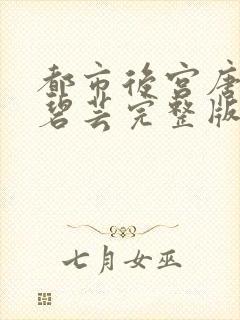 都市后宫唐
碧芸完整版
七月女巫